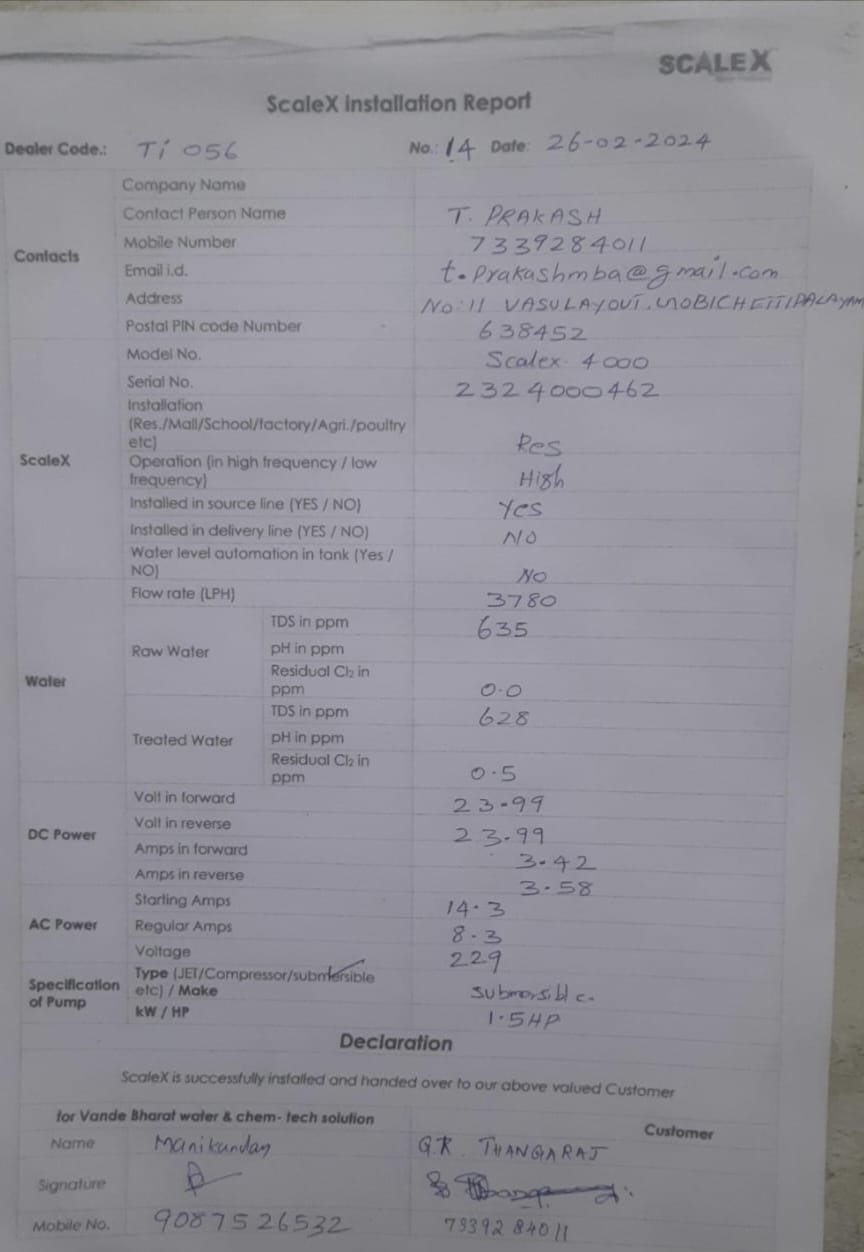 SCALEX
ScaleX Installation Report
Dealer Code.: Ti 056 No.: 14 Date: 26-02-2024
Contacts
Company Name
Contact Person Name T. PRAKASH
Mobile Number 7339284011
Email i.d. t.prakashmba@gmail.com
Address No:11 VASULAYOUT, GOBICHETTIPALAYAM
Postal PIN code Number 638452
ScaleX
Model No. Scalex 4000
Serial No. 2324000462
Installation
(Res./Mall/School/factory/Agri./poultry
etc) Res
Operation (in high frequency / low
frequency) High
Installed in source line (YES / NO) Yes
Installed in delivery line (YES / NO) NO
Water level automation in tank (Yes /
NO) No
Water
Flow rate (LPH) 3780
Raw Water
TDS in ppm 635
pH in ppm
Residual Cl2 in
ppm 0.0
Treated Water
TDS in ppm 628
pH in ppm
Residual Cl2 in
ppm 0.5
DC Power
Volt in forward 23.99
Volt in reverse 23.99
Amps in forward 3.42
Amps in reverse 3.58
AC Power
Starting Amps 14.3
Regular Amps 8.3
Voltage 229
Specification
of Pump
Type (JET/Compressor/submersible
etc) / Make Submorsible
kW / HP 1.5HP
Declaration
ScaleX is successfully installed and handed over to our above valued Customer
for Vande Bharat water & chem- tech solution Customer
Name Manikandan G.R. THANGARAJ
Signature
Mobile No. 9087526532 7339284011